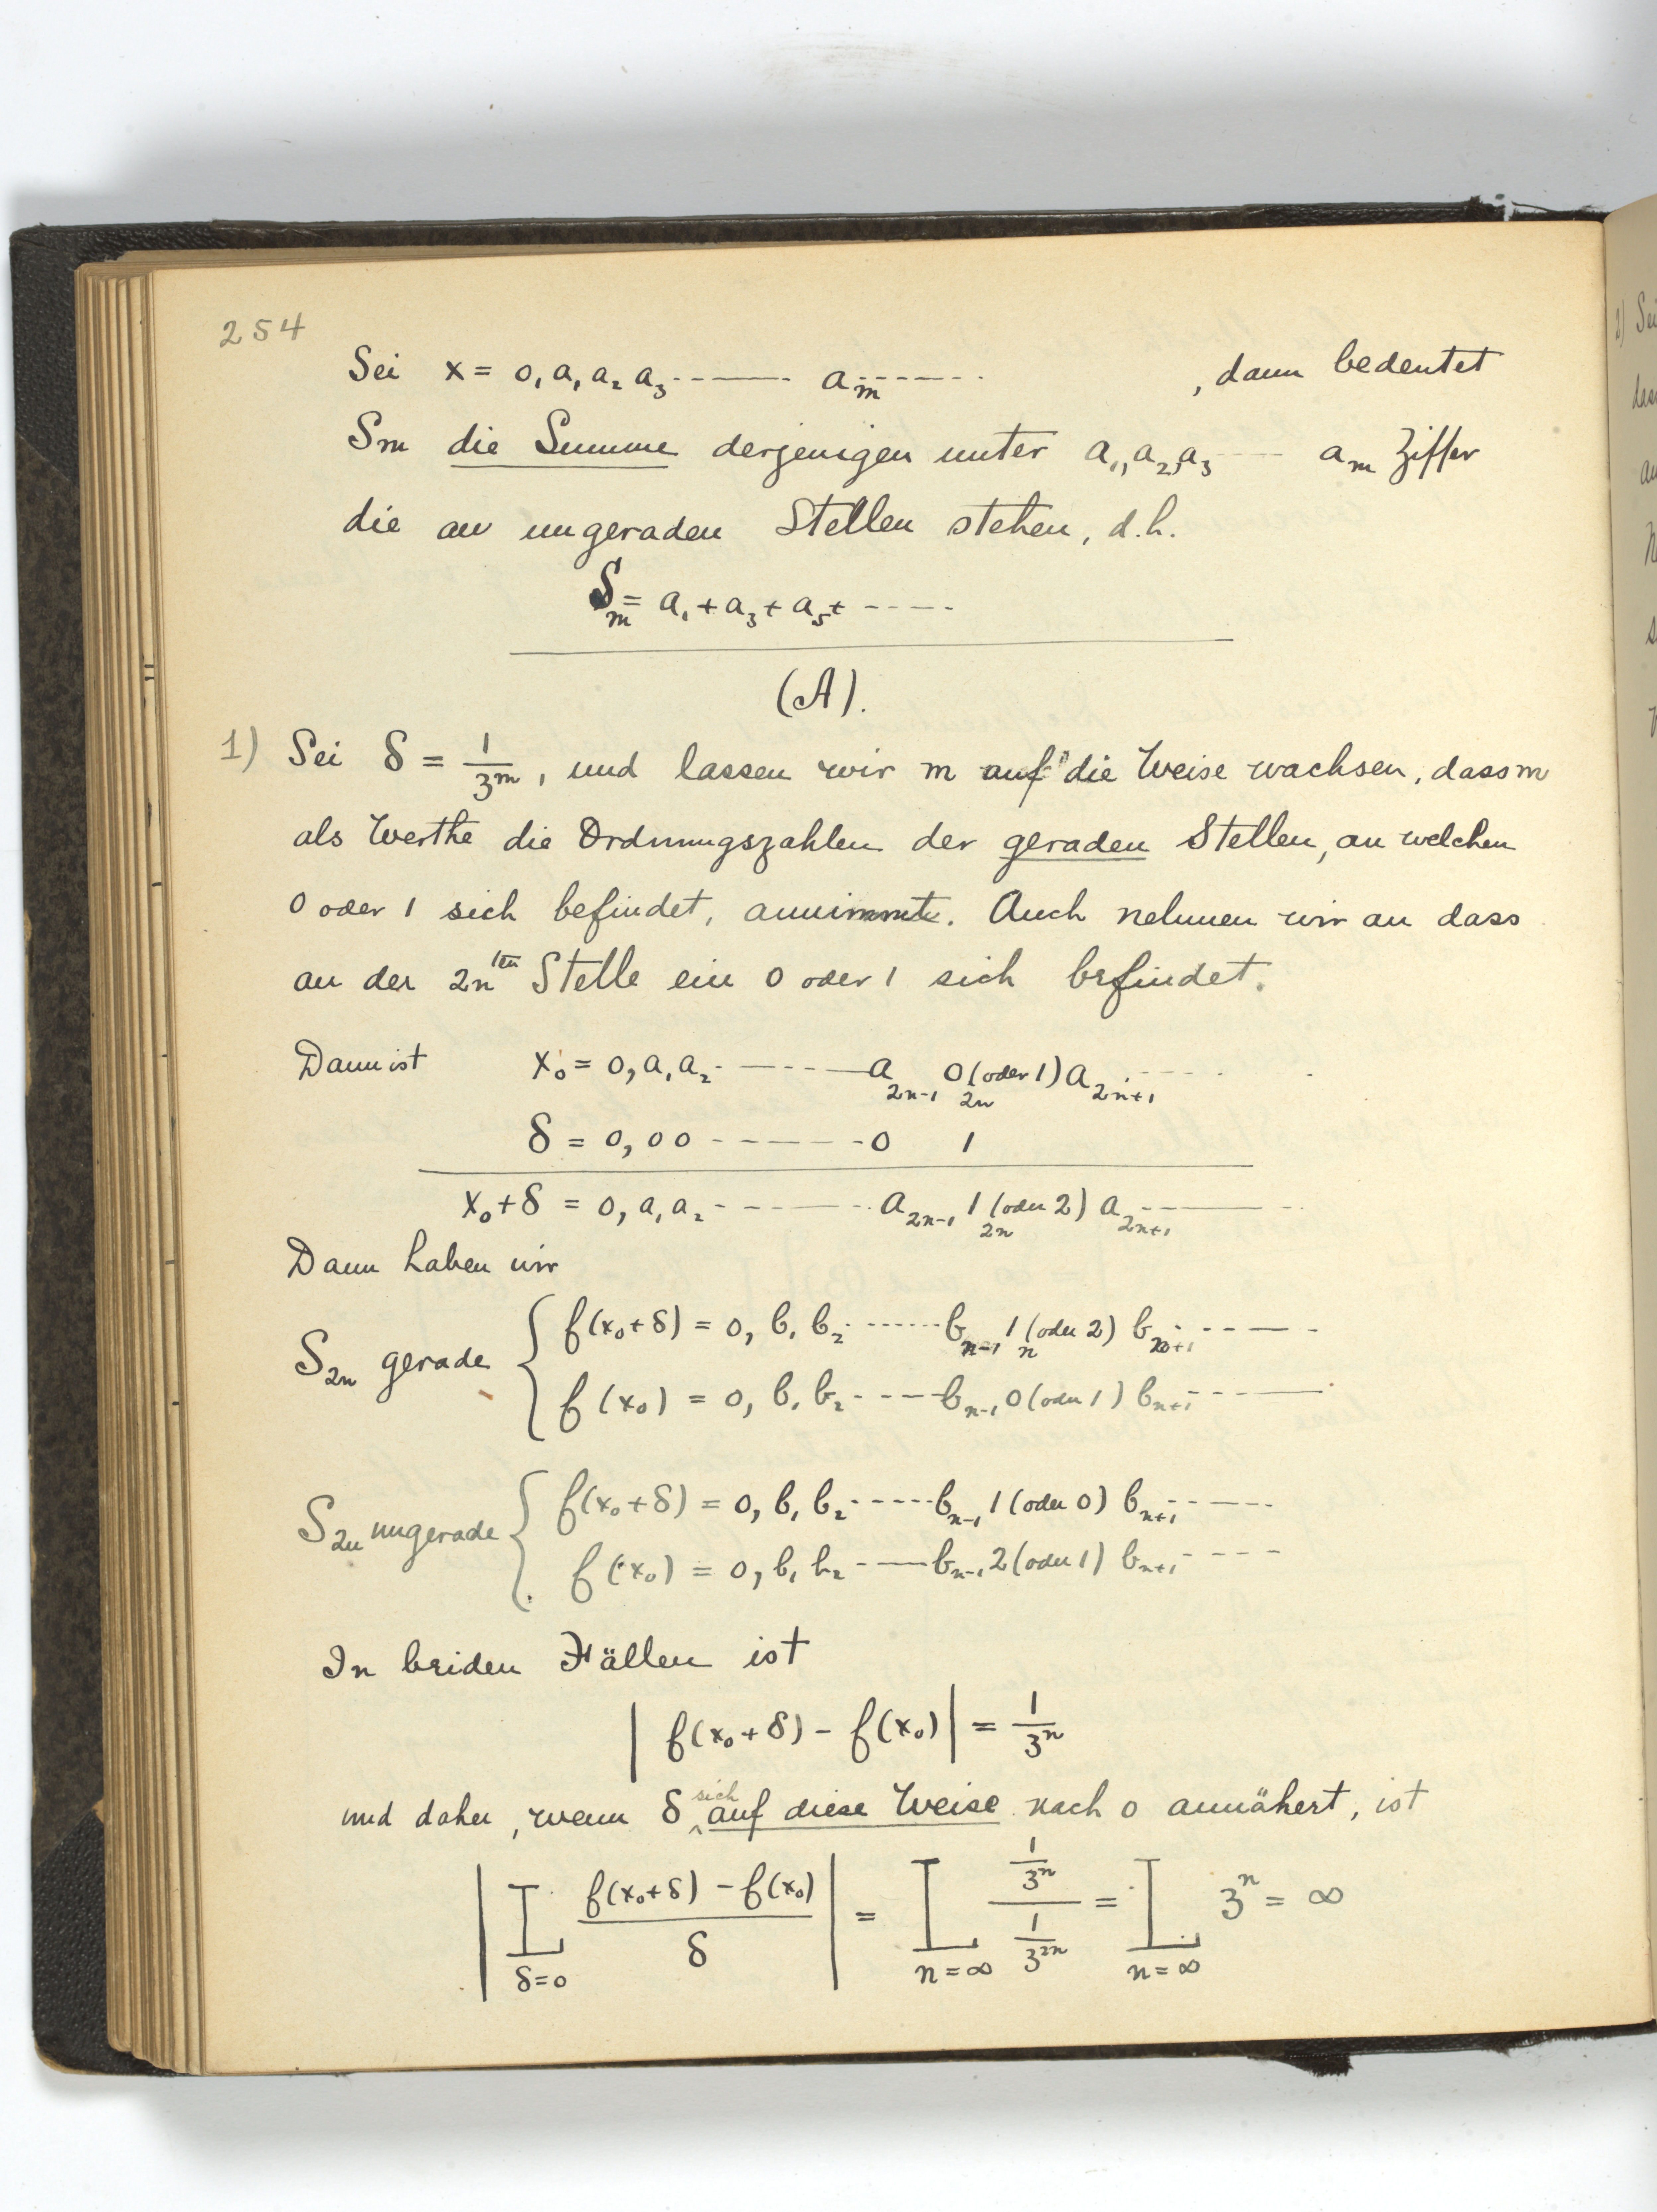 254
Sei x = 0, a₁ a₂ a₃ ------- a_m ------ , dann bedeutet
S_m die Summe derjenigen unter a₁, a₂, a₃ ---- a_m Ziffer
die an ungeraden Stellen stehen, d.h.
S_m = a₁ + a₃ + a₅ + -----
(A).
1) Sei δ = 1/3^m, und lassen wir m auf die Weise wachsen, dass m
als Werthe die Ordnungszahlen der geraden Stellen, an welchen
0 oder 1 sich befindet, annimmt. Auch nehmen wir an dass
an der 2n^ten Stelle ein 0 oder 1 sich befindet.
Dann ist x₀ = 0, a₁ a₂ - ------- a_{2n-1} 0 (oder 1)_{2n} a_{2n+1} -----
δ = 0, 00 -------- 0 1
x₀+δ = 0, a₁ a₂ --------- a_{2n-1} 1 (oder 2)_{2n} a_{2n+1} ------
Dann haben wir
S_{2n} gerade { f(x₀+δ) = 0, b₁ b₂ ------ b_{n-1} 1 (oder 2)_n b_{n+1} ------
f(x₀) = 0, b₁ b₂ ----- b_{n-1} 0 (oder 1) b_{n+1} ------
S_{2n} ungerade { f(x₀+δ) = 0, b₁ b₂ ----- b_{n-1} 1 (oder 0) b_{n+1} -----
f(x₀) = 0, b₁ b₂ ----- b_{n-1} 2 (oder 1) b_{n+1} ----
In beiden Fällen ist
| f(x₀+δ) - f(x₀) | = 1/3^n
und daher, wenn δ sich auf diese Weise nach 0 annähert, ist
| L_{δ=0} (f(x₀+δ) - f(x₀))/δ | = L_{n=∞} (1/3^n)/(1/3^{2n}) = L_{n=∞} 3^n = ∞